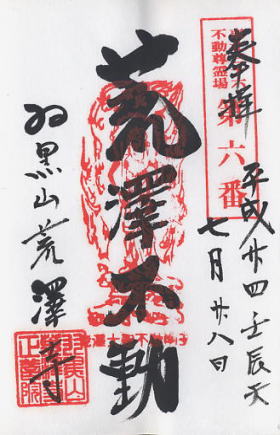 奉拝
不動尊霊場
第六番
平成廿四壬辰天
七月廿八日
荒澤不動
羽黒山荒澤寺
羽黒山
正善院